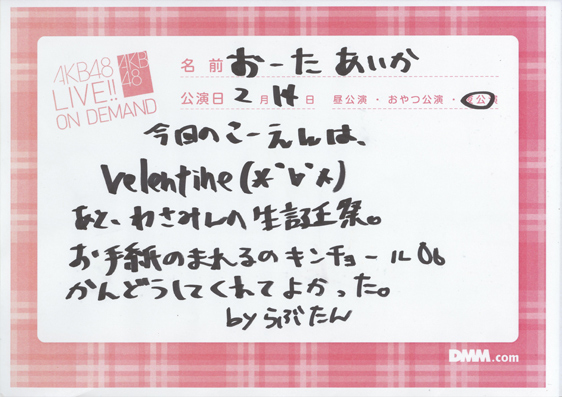 AKB48
LIVE!!
ON DEMAND
AKB
48
名前 おーた あいか
公演日 2月14日 昼公演・おやつ公演・夜公演
今回のこーえんは、
Velentine(*´∨`*)
あと、わさみんの生誕祭。
お手紙のまれるのキンチョール06
かんどうしてくれてよかった。
by らぶたん
DMM.com